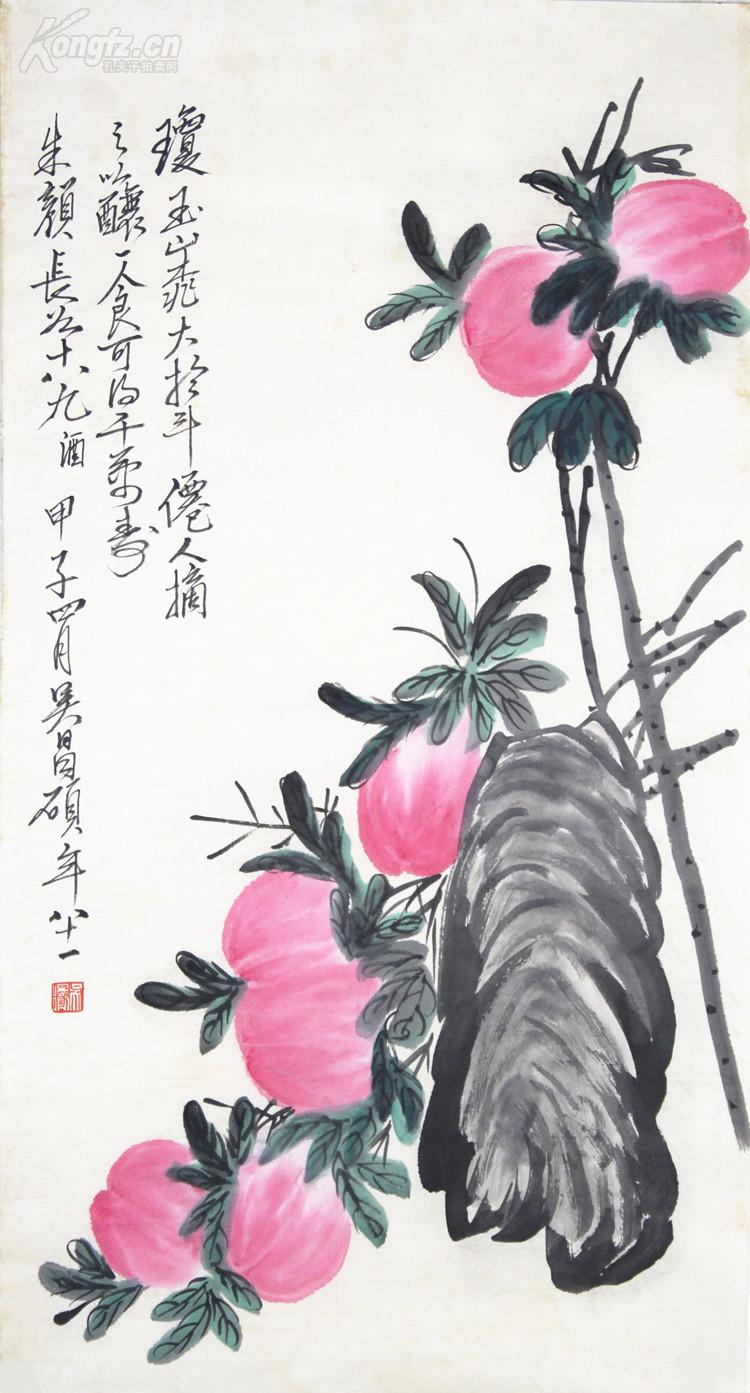 Kongfz.cn
孔夫子拍卖网
瓊玉山桃大於斗僊人摘
之以釀一食可得千萬壽
朱顏長如十八九 酒 甲子四月吳昌碩年八十一